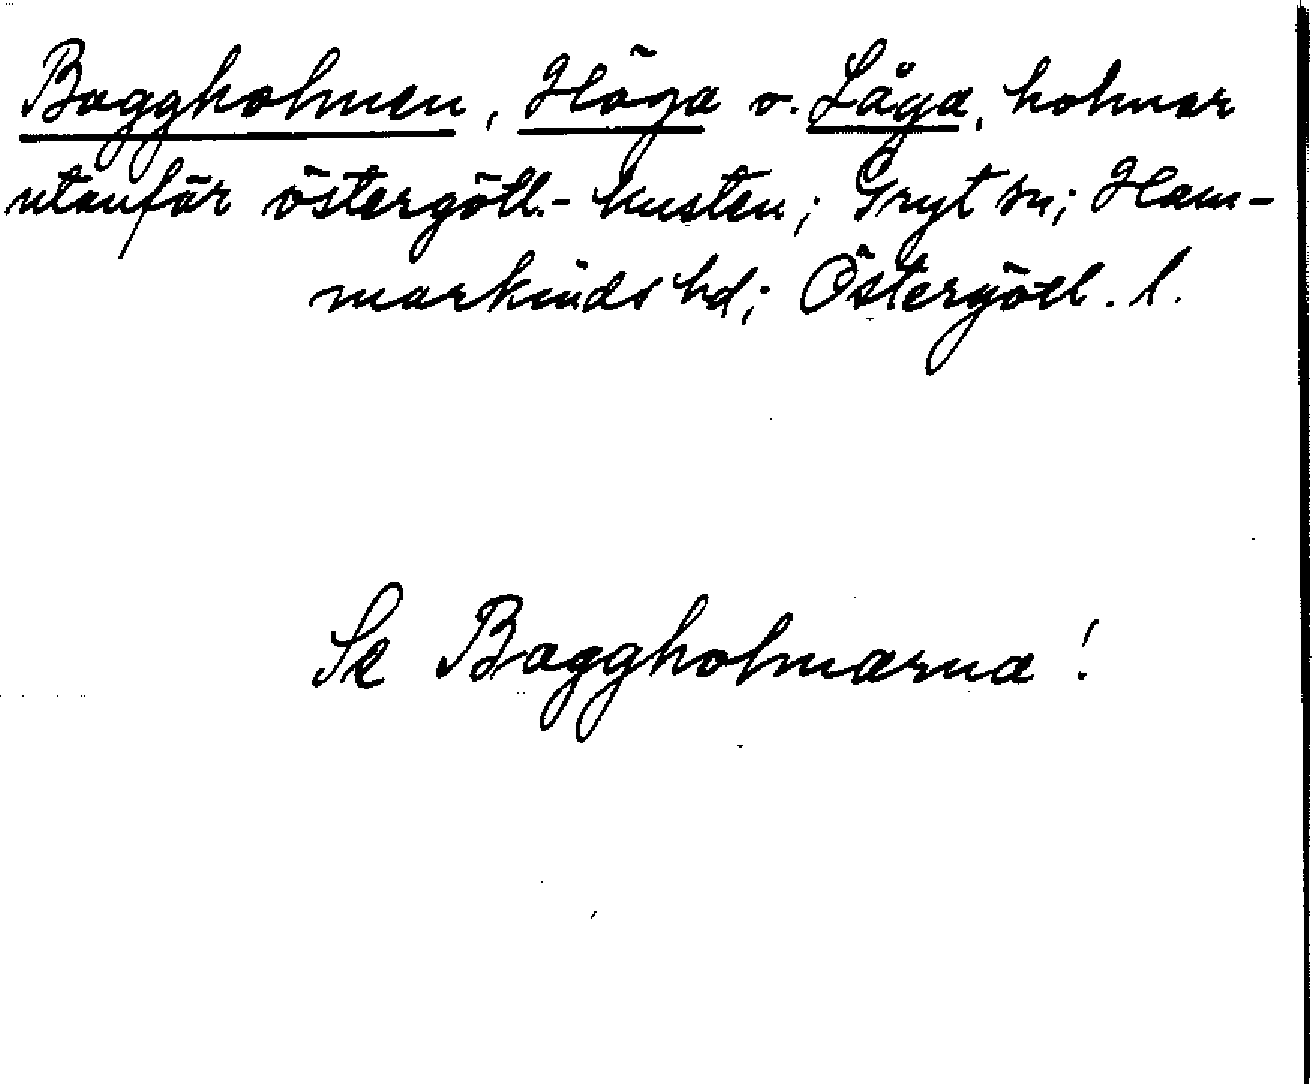 Baggholmen, Höga o. Låga, holmar
utanför östergötl.- kusten; Gryt sn; Ham-
markinds hd; Östergötl. l.
Se Baggholmarna!